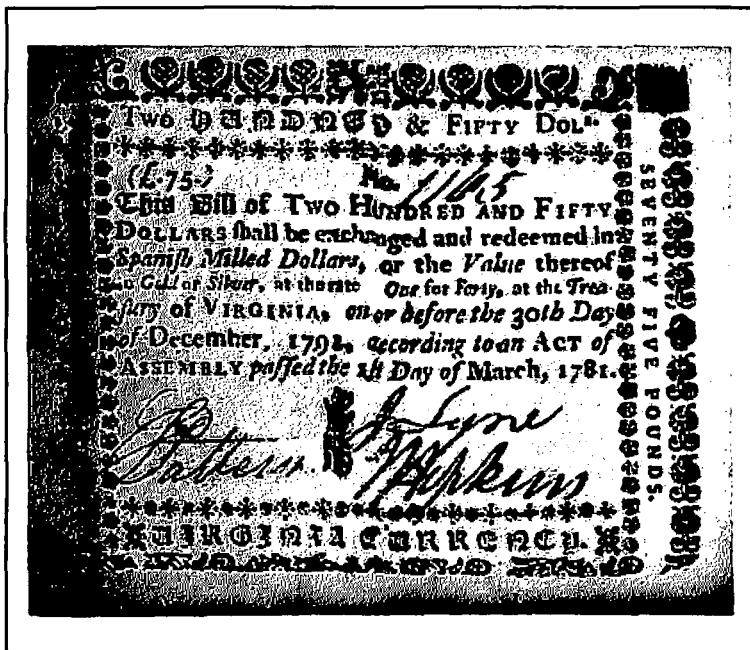 Two HUNDRED & FIFTY DOLrs.
(£.75.) No. 11615
This Bill of TWO HUNDRED AND FIFTY
DOLLARS shall be exchanged and redeemed in
Spanish Milled Dollars, or the Value thereof
in Gold or Silver, at the rate One for Forty, at the Trea-
sury of VIRGINIA, on or before the 30th Day
of December, 1792, according to an ACT of
ASSEMBLY passed the 1st Day of March, 1781.
J Lyne
Hopkins
VIRGINIA CURRENCY.
SEVENTY FIVE POUNDS.